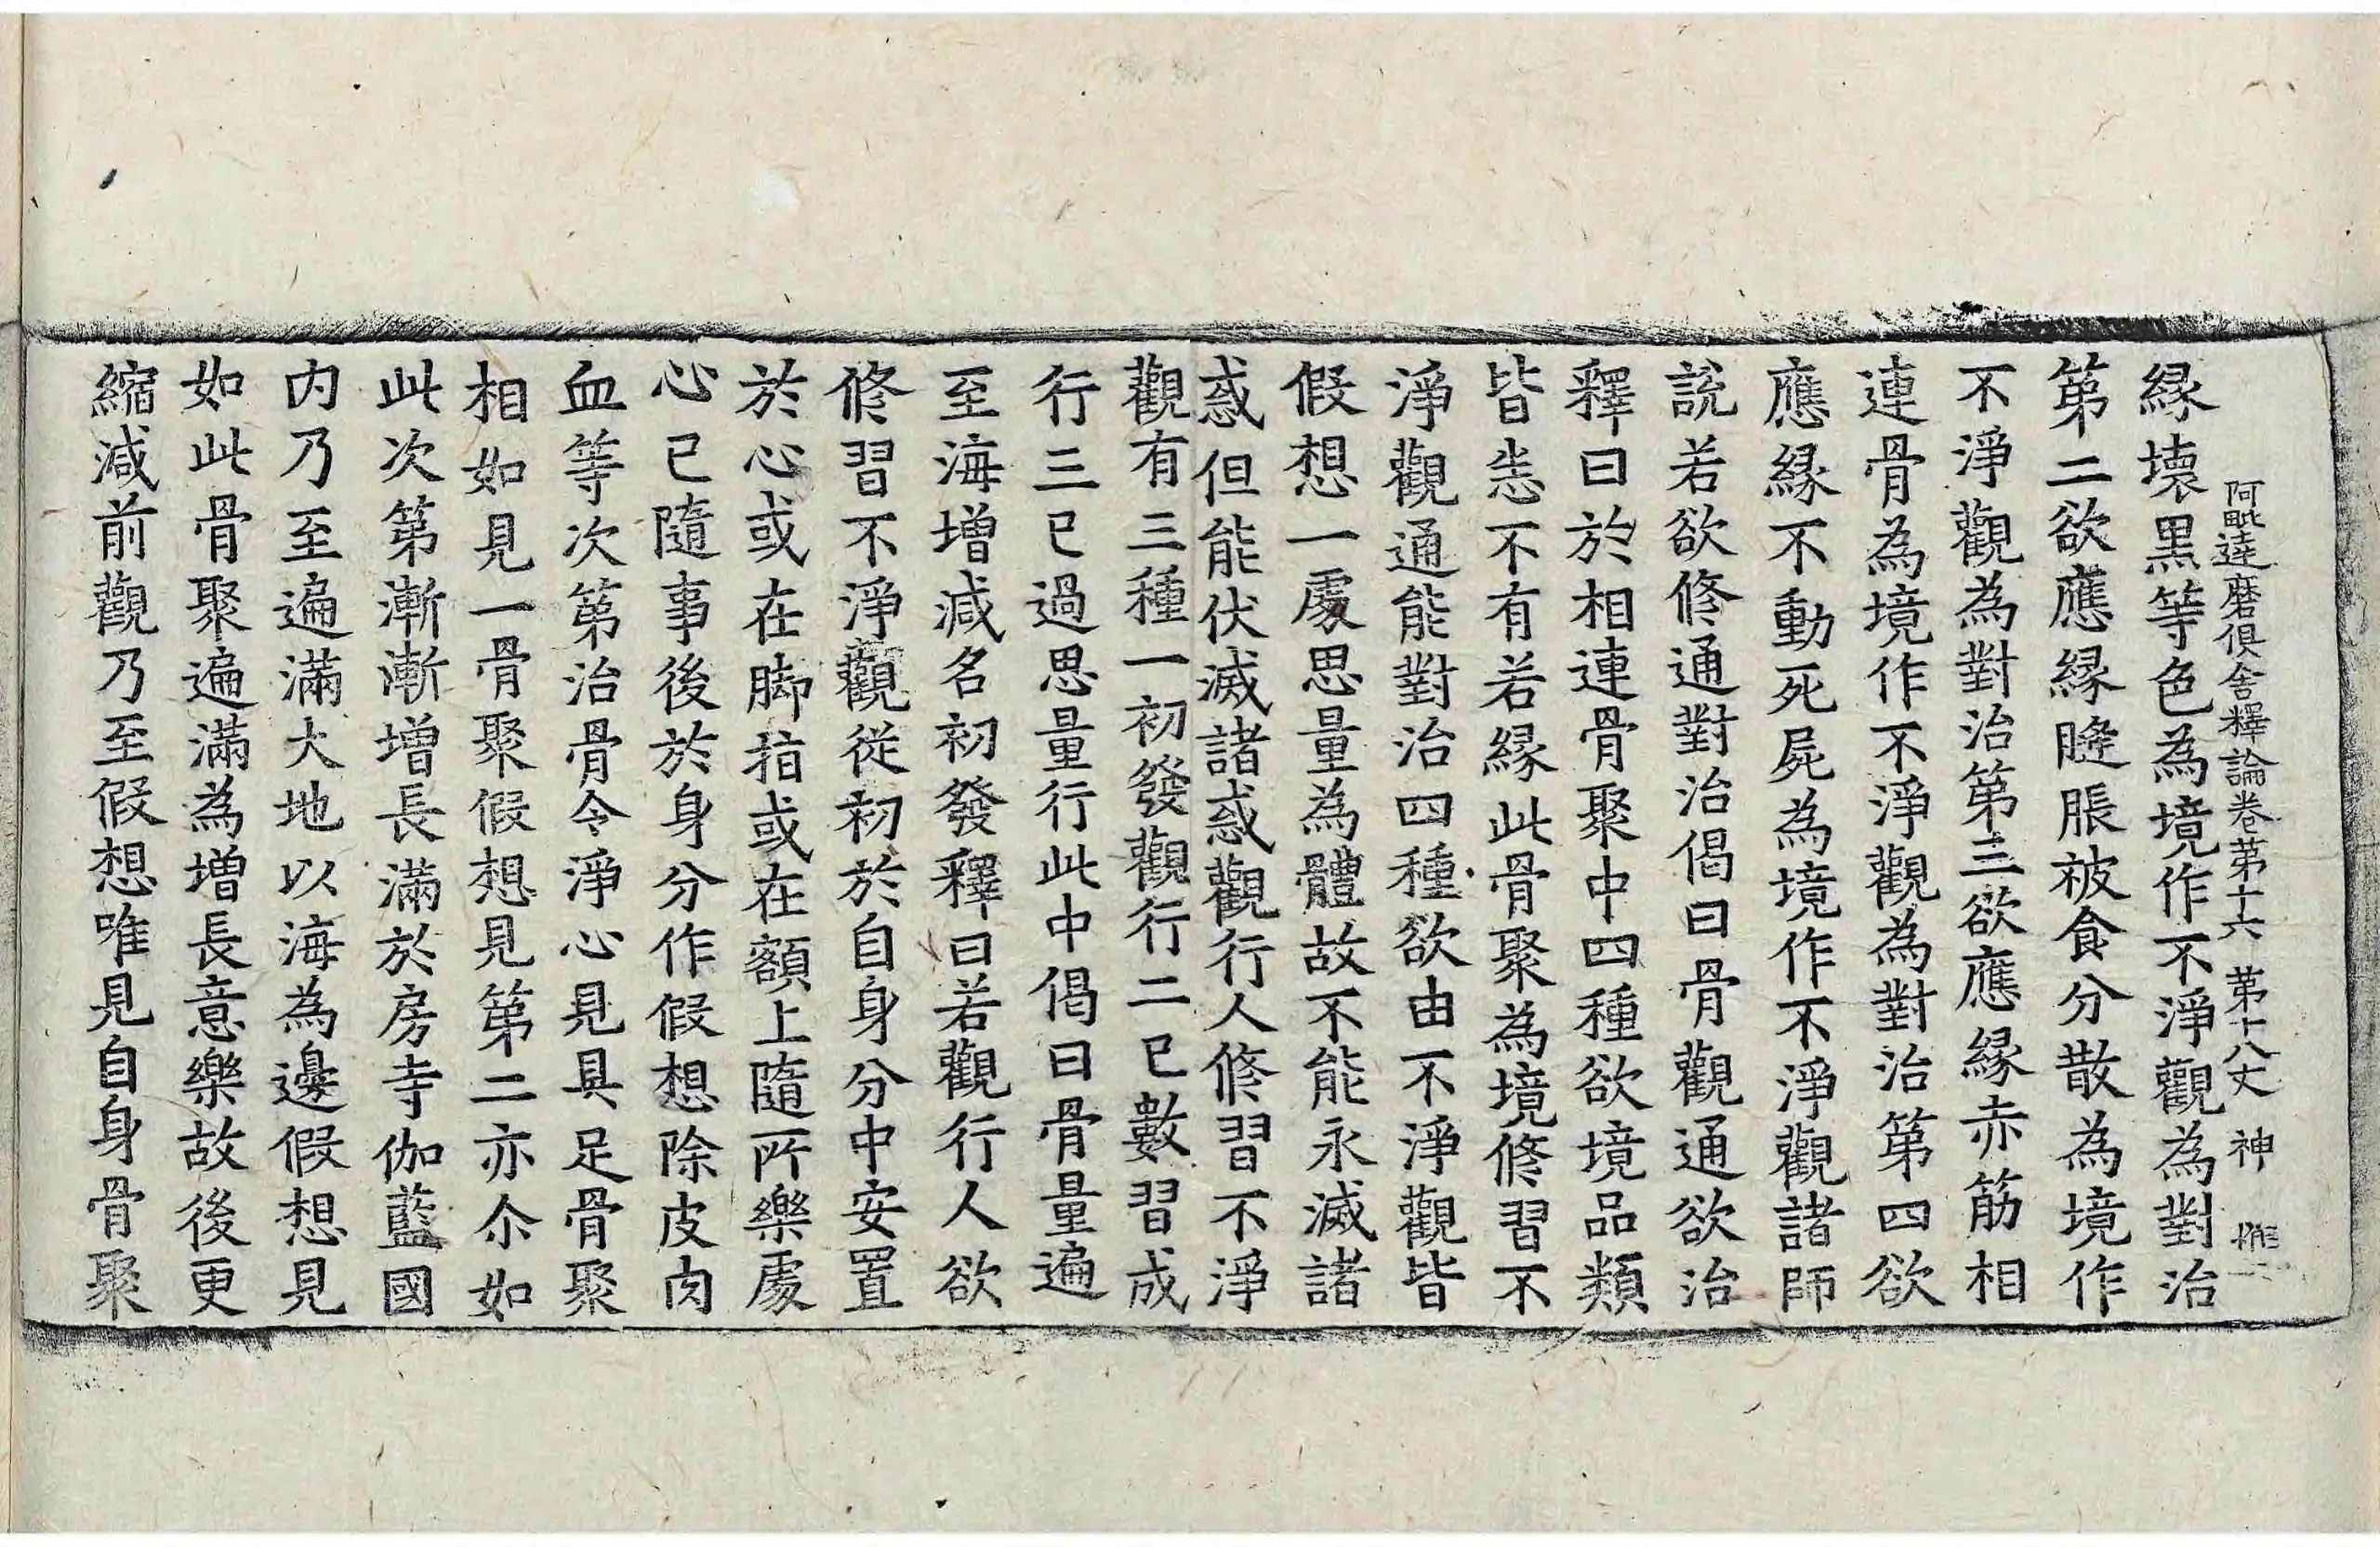 阿毗達磨俱舍釋論卷第十六 第十八丈 神
縁壞黒等色為境作不淨觀為對治
第二欲應縁膖脹被食分散為境作
不淨觀為對治第三欲應縁赤筋相
連骨為境作不淨觀為對治第四欲
應縁不動死屍為境作不淨觀諸師
説若欲修通對治偈曰骨觀通欲治
釋曰於相連骨聚中四種欲境品類
皆悉不有若縁此骨聚為境修習不
淨觀通能對治四種欲由不淨觀皆
假想一處思量為體故不能永滅諸
惑但能伏滅諸惑觀行人修習不淨
觀有三種一初發觀行二已數習成
行三已過思量行此中偈曰骨量遍
至海增減名初發釋曰若觀行人欲
修習不淨觀從初於自身分中安置
於心或在脚指或在額上隨所樂處
心已隨事後於身分作假想除皮肉
血等次第治骨令淨心見具足骨聚
相如見一骨聚假想見第二亦尒如
此次第漸漸增長滿於房寺伽藍國
内乃至遍滿大地以海為邊假想見
如此骨聚遍滿為增長意樂故後更
縮減前觀乃至假想唯見自身骨聚